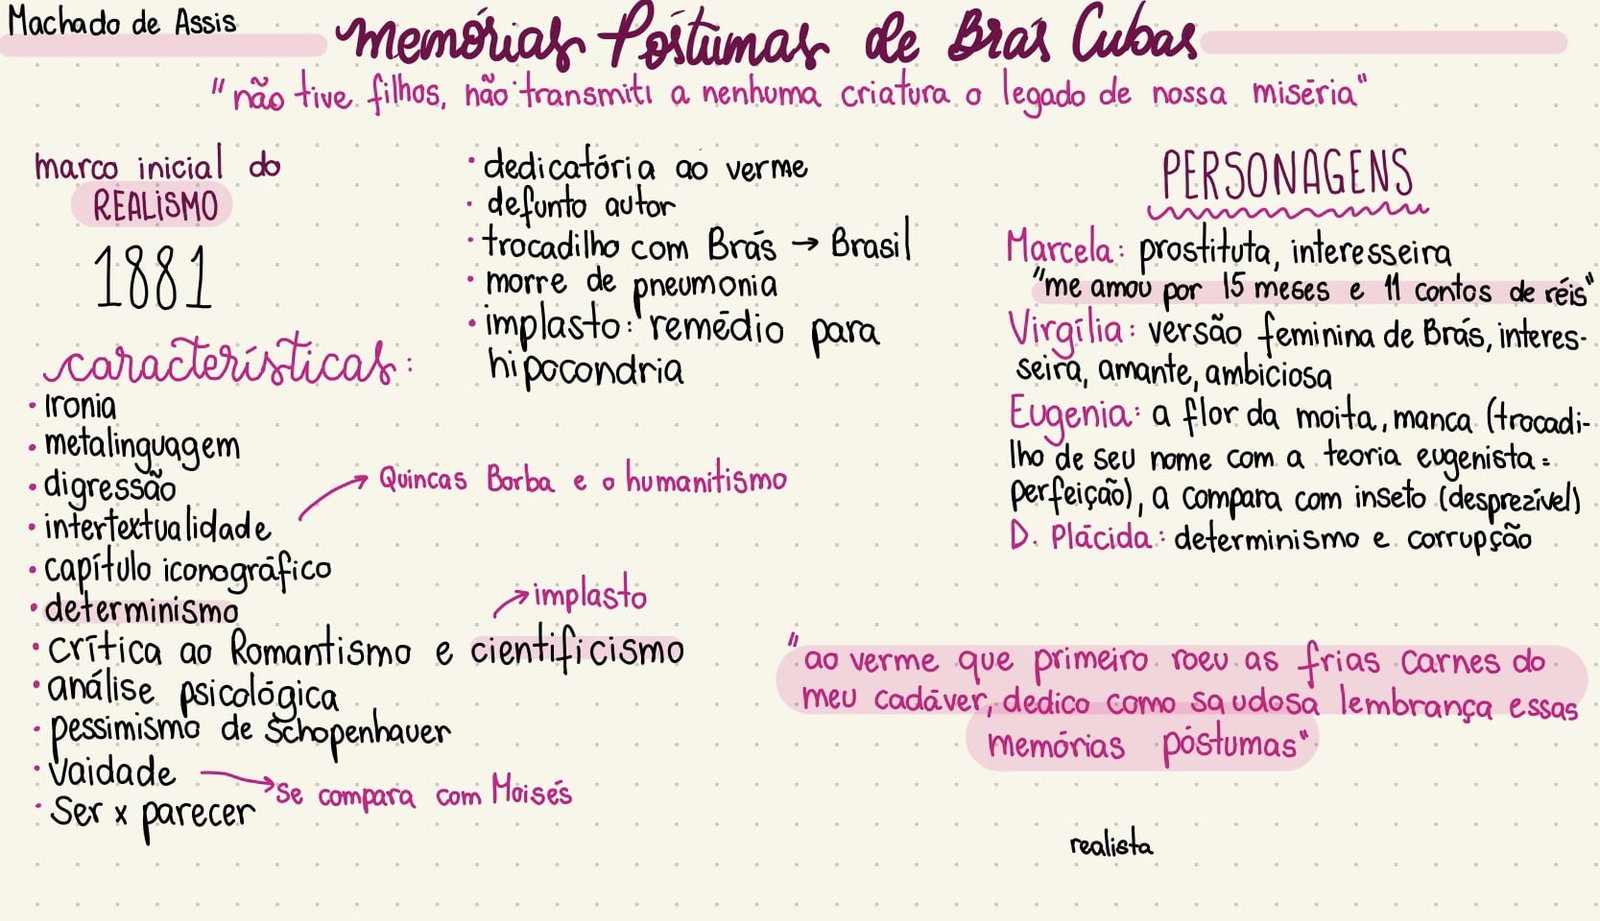 Machado de Assis
Memórias Póstumas de Brás Cubas
"não tive filhos, não transmiti a nenhuma criatura o legado de nossa miséria"
marco inicial do
REALISMO
1881
características:
• Ironia
• metalinguagem
• digressão
• intertextualidade
→ Quincas Borba e o humanitismo
• capítulo iconográfico
• determinismo
• crítica ao Romantismo e cientificismo
→ implasto
• análise psicológica
• pessimismo de Schopenhauer
• Vaidade → Se compara com Moisés
• Ser x parecer
• dedicatória ao verme
• defunto autor
• trocadilho com Brás → Brasil
• morre de pneumonia
• implasto: remédio para
hipocondria
PERSONAGENS
Marcela: prostituta, interesseira
"me amou por 15 meses e 11 contos de réis"
Virgília: versão feminina de Brás, interes-
seira, amante, ambiciosa
Eugenia: a flor da moita, manca (trocadi-
lho de seu nome com a teoria eugenista =
perfeição), a compara com inseto (desprezível)
D. Plácida: determinismo e corrupção
"ao verme que primeiro roeu as frias carnes do
meu cadáver, dedico como saudosa lembrança essas
memórias póstumas"
realista